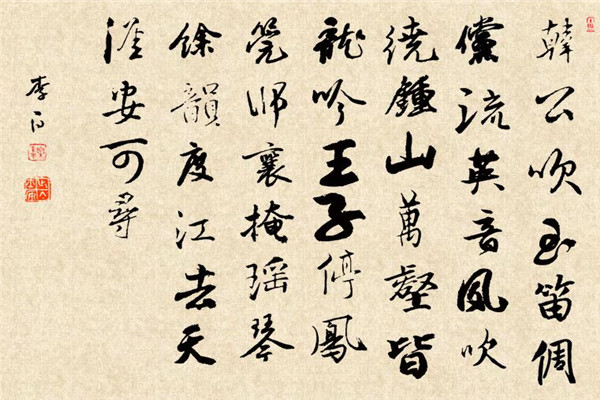 韓公吹玉笛倜
儻流英音風吹
繞鍾山萬壑皆
龍吟王子停鳳
筦師襄掩瑶琴
餘韻度江去天
涯安可尋
李白